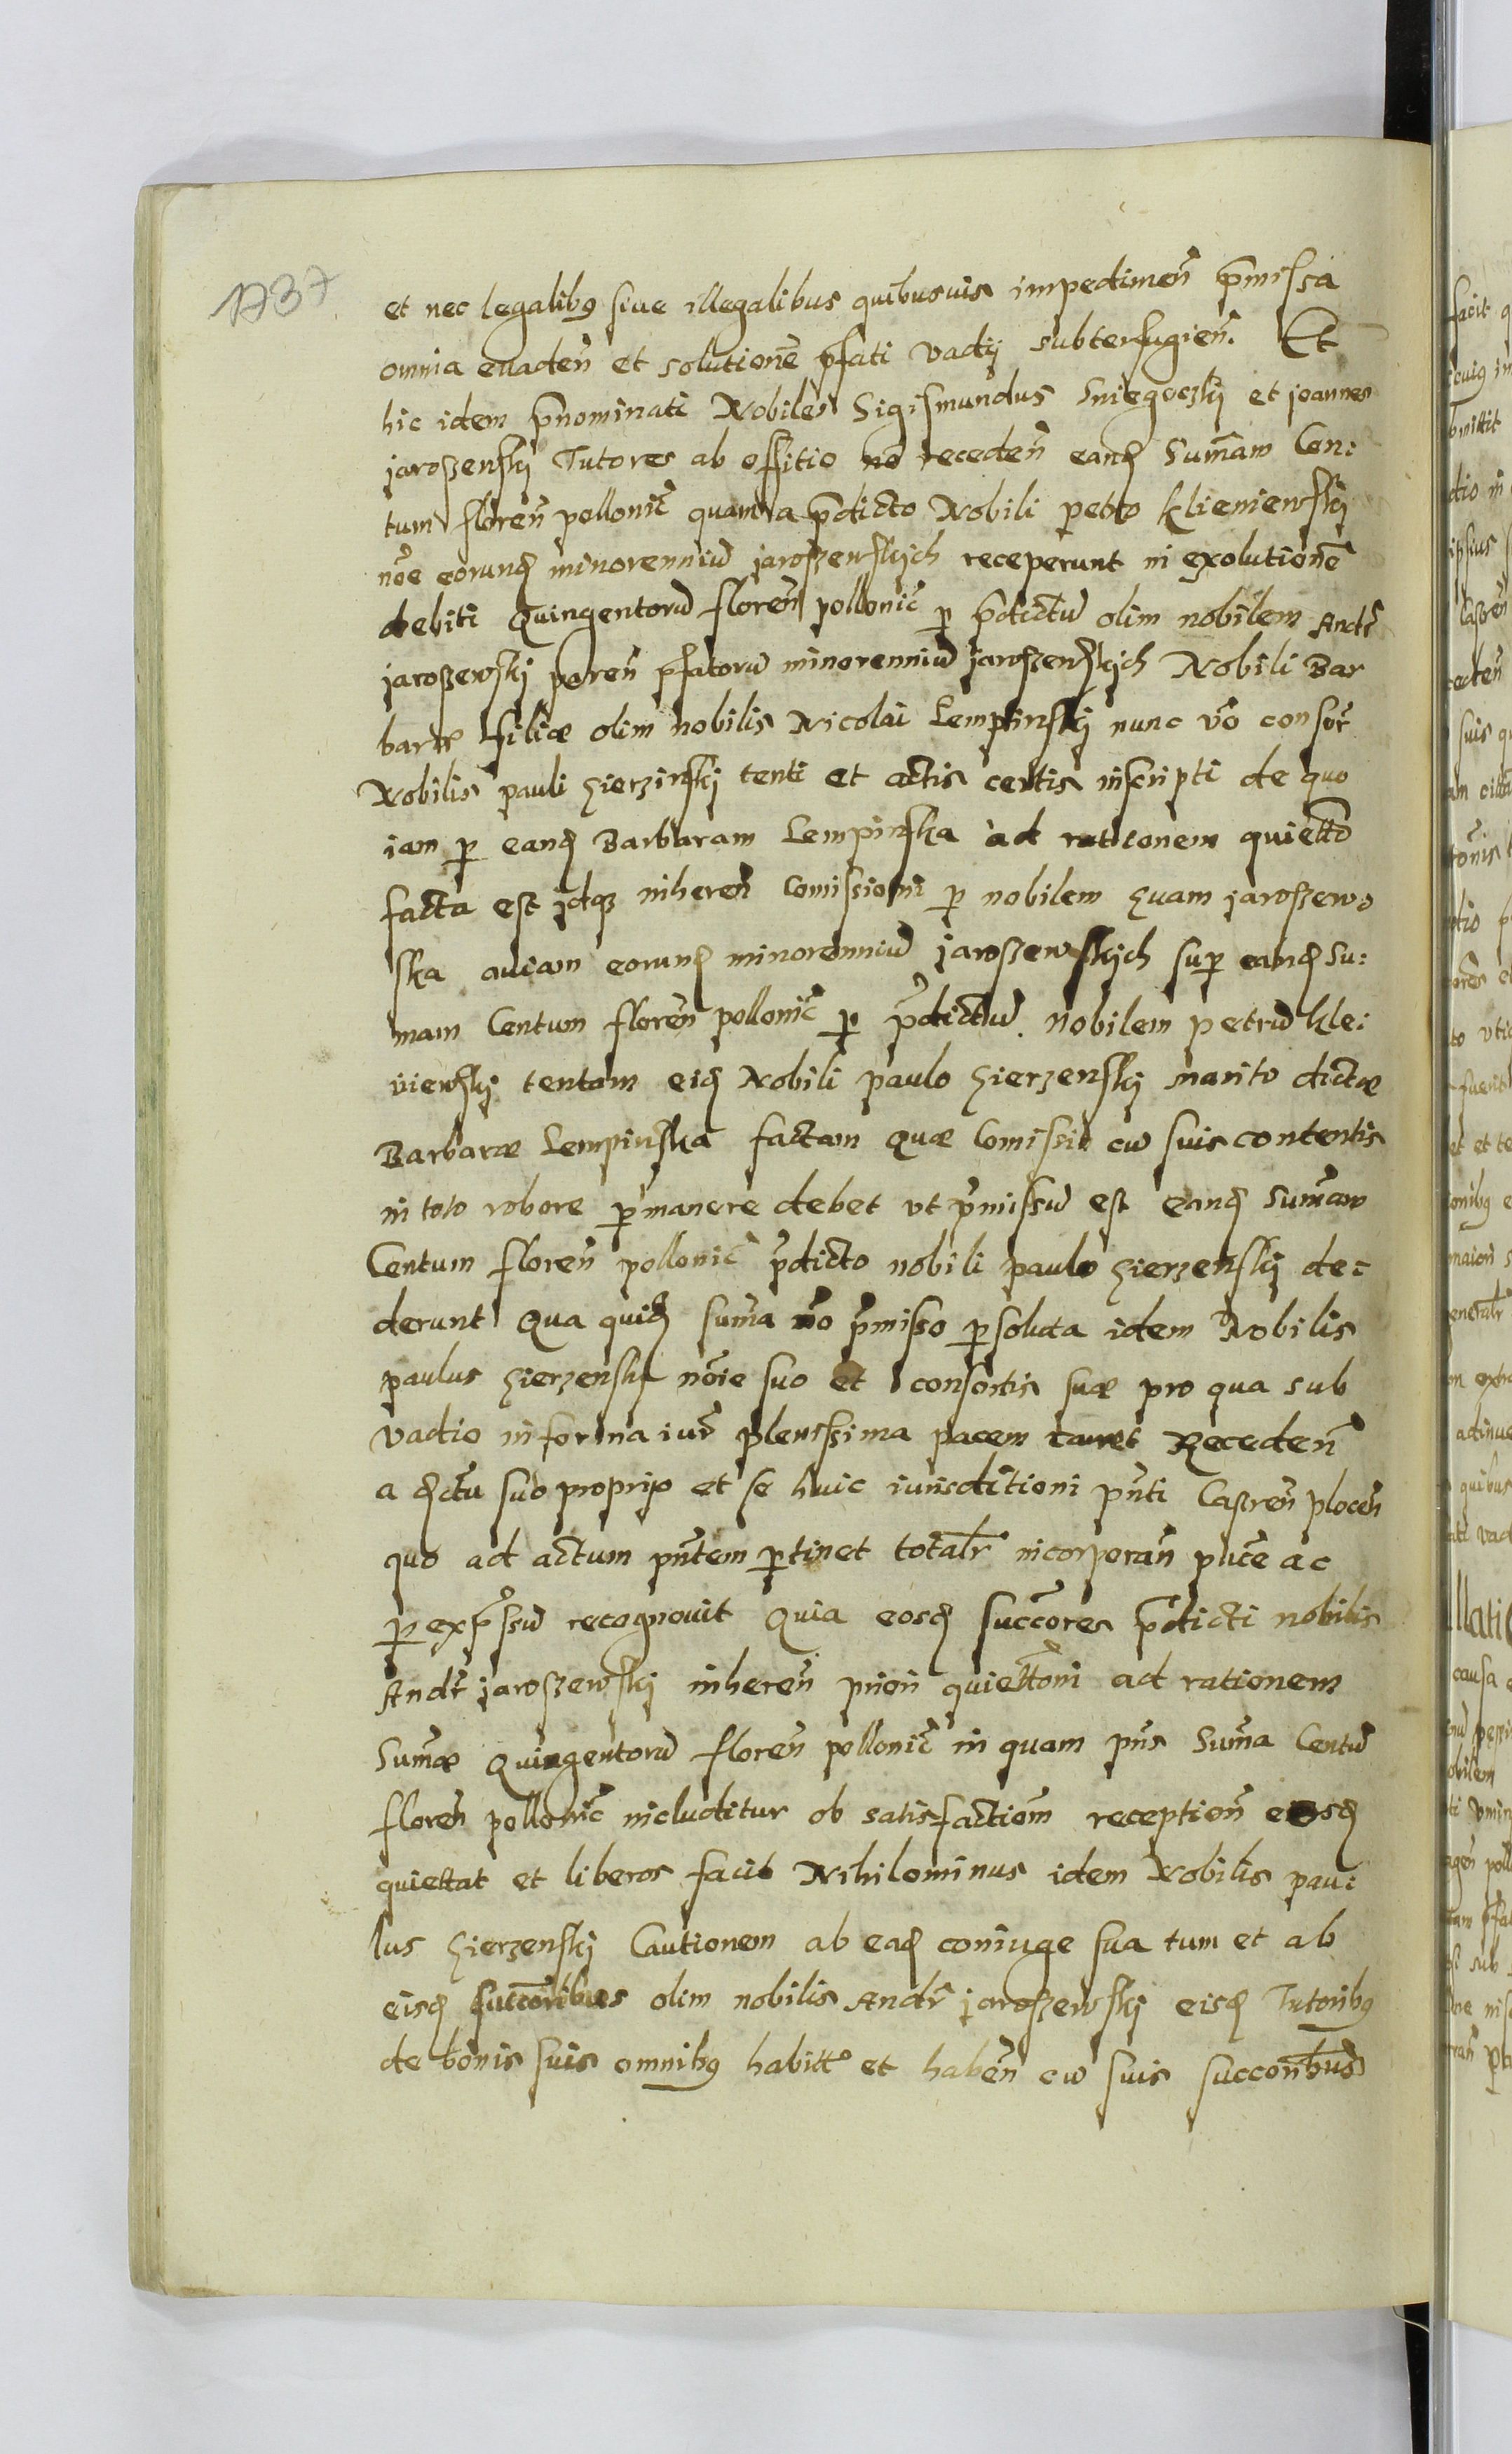 1737
et nec legalibꝯ siue illegalibus quibusuis impedimen̄ p̄missa
omnia euaden̄ et solutionē p̄fati vadij subterfugien̄. Et
hic idem p̄nominati Nobiles Sigismundus Sniegoczkj et joannes
jaroszenskj Tutores ab offitio nō receden̄ eanđ Sum̄am Cen:
tum floren̄ pollonic̄ quam a p̄dicto Nobili petro kliemiewskj
nōe eorunđ minorenniū jaroszewskjch receperunt in exolutionē
debiti Quingentorū floren̄ pollonic̄ p p̄dictū olim nobilem Andr̄
jaroszewskj paren̄ p̄fatorū minorenniū jaroszewskjch Nobili Bar
baræ filiæ olim nobilis Nicolai Lempinskj nunc v̄o consor̄
Nobilis pauli Gierzinskj tenti et actis certis inscripti de quo
iam p eanđ Barbaram Lempinska ad rationem quiettō
facta est jdqȝ inheren̄ Comissioni p nobilem quam jaroszew
ska auiam eorunđ minorenniū jaroszewskjch sup eanđ Su:
mam Centum floren̄ pollonic̄ p p̄dictū nobilem petrū kle:
niewskj tentam eiđ Nobili paulo Gierzenskj marito dictæ
Barbaræ Lempinska factam Quæ Comissio cū suis contentis
in toto robore p̄manere debet vt p̄missū est eanđ Sum̄am
Centum floren̄ pollonic̄ p̄dicto nobili paulo Gierzenskj de:
derunt Qua quiđ sum̄a v̄o p̄misso psoluta idem Nobilis
paulus Gierzenskj nōie suo et consortis suæ pro qua sub
vadio in forma iur̄ plenissima pacem cauet Receden̄
a đctu suo proprijo et se huic iurisditioni pn̄ti Castren̄ plocen̄
quo ad actum pn̄tem ptinet totalr̄ incorporan̄ plic̄e ac
p exp̄ssū recognouit Quia eosđ succ̄ores p̄dicti nobilis
Andr̄ jaroszewskj inheren̄ priori quiettōni ad rationem
Sum̄æ Quingentorū floren̄ pollonic̄ in quam pn̄s Sum̄a Centū
floren̄ pollonic̄ includitur ob satisfactiōm reception̄ eosđ
quiettat et liberos facit Nihilominus idem Nobilis pau:
lus Gierzenskj Cautionem ab eađ coniuge sua tum et ab
eisđ succ̄oribus olim nobilis Andr̄ jaroszewskj eisđ Tutoribꝯ
de bonis suis omnibꝯ habitt̄ et haben̄ cū suis succoribus